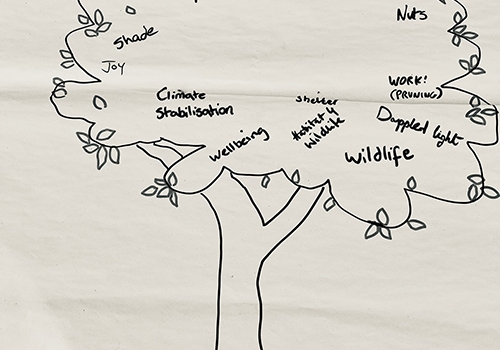 Nuts
Shade
Joy
WORK!
(PRUNING)
Climate
Stabilisation
shelter
Habitat 4
wildlife
Dappled light
wellbeing
wildlife